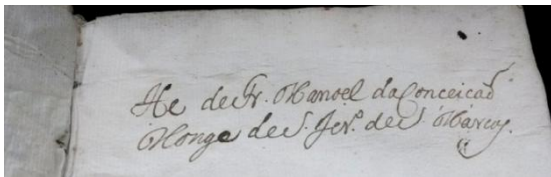 He de Fr. Manoel da Conceicaõ
Monge de S. Jer.º de S. Marcos.